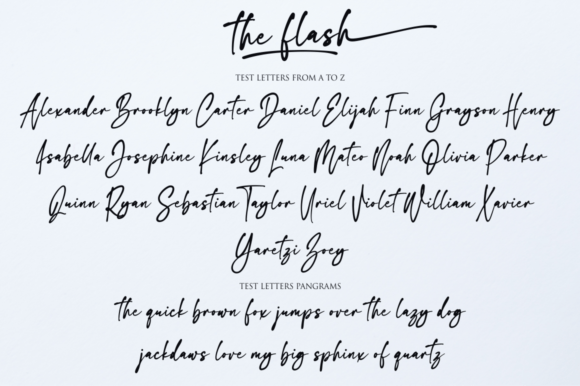 the flash
TEST LETTERS FROM A TO Z
Alexander Brooklyn Carter Daniel Elijah Finn Grayson Henry
Isabella Josephine Kinsley Luna Mateo Noah Olivia Parker
Quinn Ryan Sebastian Taylor Uriel Violet William Xavier
Yaretzi Zoey
TEST LETTERS PANGRAMS
the quick brown fox jumps over the lazy dog
jackdaws love my big sphinx of quartz